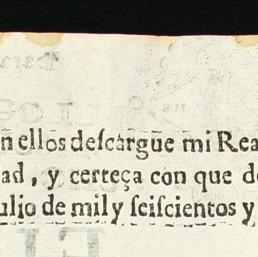 n ellos deſcargue mi Rea
ad, y certeça con que d
ulio de mil y ſeiſcientos y